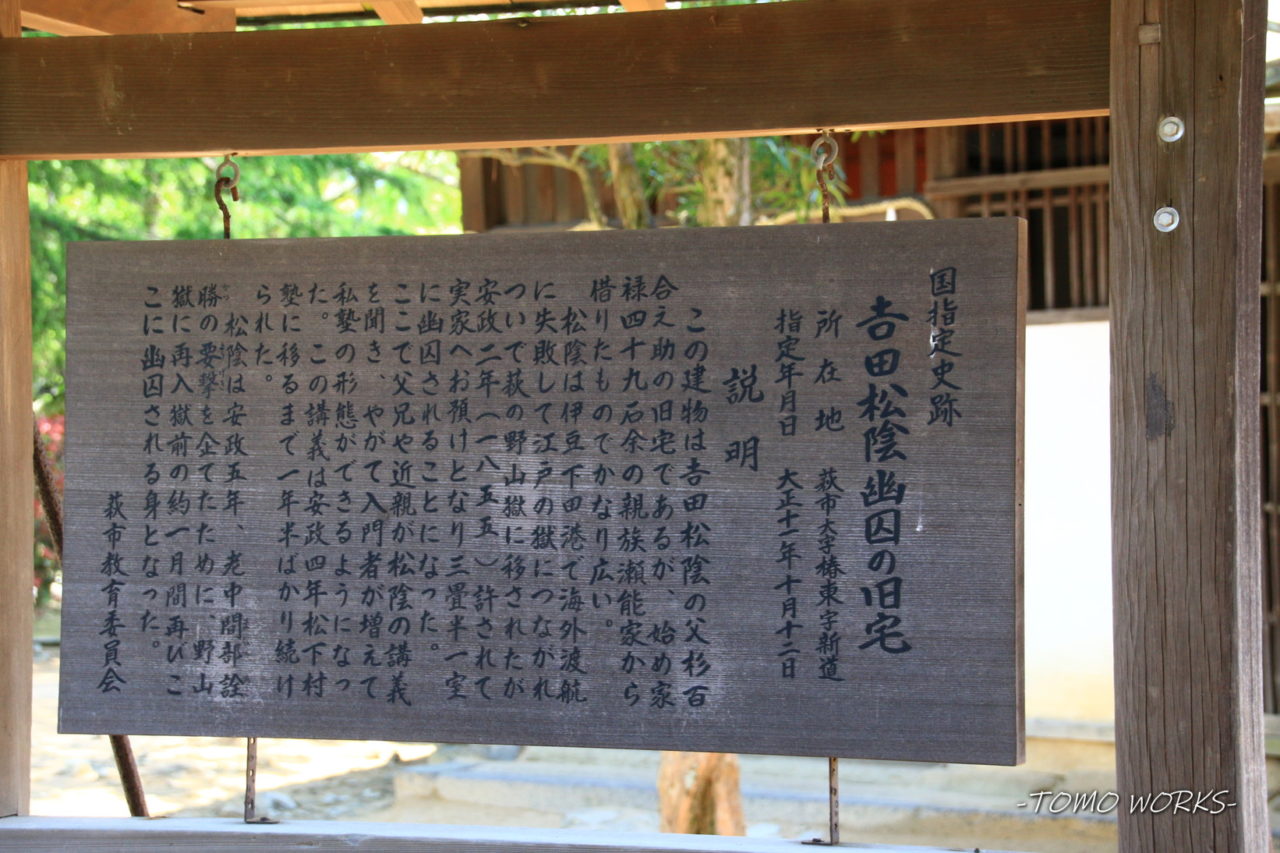 国指定史跡
吉田松陰幽囚の旧宅
所在地 萩市大字椿東字新道
指定年月日 大正十一年十月十二日
説明
この建物は吉田松陰の父杉百
合之助の旧宅であるが、始め家
禄四十九石余の親族瀬能家から
借りたものでかなり広い。
松陰は伊豆下田港で海外渡航
に失敗して江戸の獄につながれ
ついで萩の野山獄に移されたが
安政二年(一八五五)許されて
実家へお預けとなり三畳半一室
に幽囚されることになった。
ここで父兄や近親が松陰の講義
を聞き、やがて入門者が増えて
私塾の形態ができるようになっ
た。この講義は安政四年松下村
塾に移るまで一年半ばかり続け
られた。
松陰は安政五年、老中間部詮
勝の要撃を企てたために、野山
獄に再入獄前の約一月間再びこ
こに幽囚される身となった。
萩市教育委員会
-TOMO WORKS-